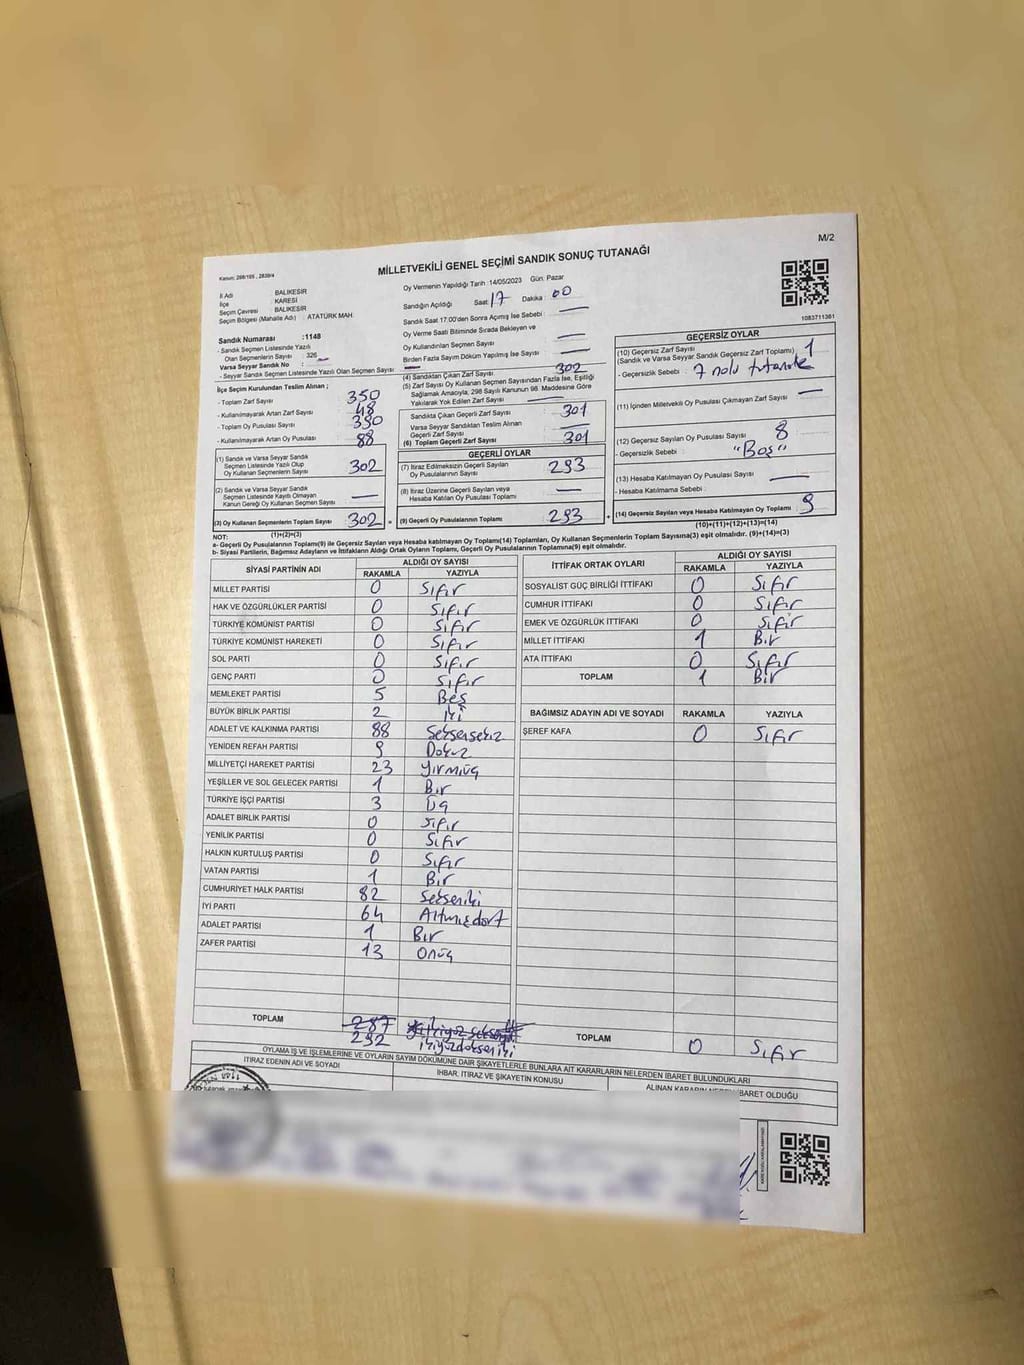 M/2
Kanun: 298/105 , 2839/4
MİLLETVEKİLİ GENEL SEÇİMİ SANDIK SONUÇ TUTANAĞI
İl Adı : BALIKESİR
İlçe : KARESİ
Seçim Çevresi : BALIKESİR
Seçim Bölgesi (Mahalle Adı) : ATATÜRK MAH.
Sandık Numarası : 1148
- Sandık Seçmen Listesinde Yazılı
Olan Seçmenlerin Sayısı : 326
Varsa Seyyar Sandık No : —
- Seyyar Sandık Seçmen Listesinde Yazılı Olan Seçmen Sayısı : —
İlçe Seçim Kurulundan Teslim Alınan ;
- Toplam Zarf Sayısı : 350
- Kullanılmayarak Artan Zarf Sayısı : 48
- Toplam Oy Pusulası Sayısı : 390
- Kullanılmayarak Artan Oy Pusulası : 88
(1) Sandık ve Varsa Seyyar Sandık
Seçmen Listesinde Yazılı Olup
Oy Kullanan Seçmenlerin Sayısı 302
(2) Sandık ve Varsa Seyyar Sandık
Seçmen Listesinde Kayıtlı Olmayan
Kanun Gereği Oy Kullanan Seçmen Sayısı —
(3) Oy Kullanan Seçmenlerin Toplam Sayısı 302 =
(1)+(2)=(3)
Oy Vermenin Yapıldığı Tarih : 14/05/2023 Gün: Pazar
Sandığın Açıldığı Saat: 17 Dakika : 00
Sandık Saat 17:00'den Sonra Açımış İse Sebebi : —
Oy Verme Saati Bitiminde Sırada Bekleyen ve
Oy Kullandırılan Seçmen Sayısı : —
Birden Fazla Sayım Dökümü Yapılmış İse Sayısı : —
(4) Sandıktan Çıkan Zarf Sayısı : 302
(5) Zarf Sayısı Oy Kullanan Seçmen Sayısından Fazla İse, Eşitliği
Sağlamak Amacıyla, 298 Sayılı Kanunun 98. Maddesine Göre
Yakılarak Yok Edilen Zarf Sayısı : —
Sandıkta Çıkan Geçerli Zarf Sayısı : 301
Varsa Seyyar Sandıktan Teslim Alınan
Geçerli Zarf Sayısı : —
(6) Toplam Geçerli Zarf Sayısı : 301
GEÇERLİ OYLAR
(7) İtiraz Edilmeksizin Geçerli Sayılan
Oy Pusulalarının Sayısı 293
(8) İtiraz Üzerine Geçerli Sayılan veya
Hesaba Katılan Oy Pusulası Toplamı —
(9) Geçerli Oy Pusulalarının Toplamı 293 +
1083711361
GEÇERSİZ OYLAR
(10) Geçersiz Zarf Sayısı
(Sandık ve Varsa Seyyar Sandık Geçersiz Zarf Toplamı) 1
- Geçersizlik Sebebi : 7 nolu tutanakta
(11) İçinden Milletvekili Oy Pusulası Çıkmayan Zarf Sayısı : —
(12) Geçersiz Sayılan Oy Pusulası Sayısı : 8
- Geçersizlik Sebebi : "Boş"
(13) Hesaba Katılmayan Oy Pusulası Sayısı : —
- Hesaba Katılmama Sebebi :
(14) Geçersiz Sayılan veya Hesaba Katılmayan Oy Toplamı 9
(10)+(11)+(12)+(13)=(14)
NOT:
a- Geçerli Oy Pusulalarının Toplamı(9) ile Geçersiz Sayılan veya Hesaba Katılmayan Oy Toplamı(14) Toplamları, Oy Kullanan Seçmenlerin Toplam Sayısına(3) eşit olmalıdır. (9)+(14)=(3)
b- Siyasi Partilerin, Bağımsız Adayların ve İttifakların Aldığı Ortak Oyların Toplamı, Geçerli Oy Pusulalarının Toplamına(9) eşit olmalıdır.
SİYASİ PARTİNİN ADI ALDIĞI OY SAYISI
RAKAMLA YAZIYLA
MİLLET PARTİSİ 0 Sıfır
HAK VE ÖZGÜRLÜKLER PARTİSİ 0 Sıfır
TÜRKİYE KOMÜNİST PARTİSİ 0 Sıfır
TÜRKİYE KOMÜNİST HAREKETİ 0 Sıfır
SOL PARTİ 0 Sıfır
GENÇ PARTİ 0 Sıfır
MEMLEKET PARTİSİ 5 Beş
BÜYÜK BİRLİK PARTİSİ 2 İki
ADALET VE KALKINMA PARTİSİ 88 Seksensekiz
YENİDEN REFAH PARTİSİ 9 Dokuz
MİLLİYETÇİ HAREKET PARTİSİ 23 Yirmiüç
YEŞİLLER VE SOL GELECEK PARTİSİ 1 Bir
TÜRKİYE İŞÇİ PARTİSİ 3 Üç
ADALET BİRLİK PARTİSİ 0 Sıfır
YENİLİK PARTİSİ 0 Sıfır
HALKIN KURTULUŞ PARTİSİ 0 Sıfır
VATAN PARTİSİ 1 Bir
CUMHURİYET HALK PARTİSİ 82 Sekseniki
İYİ PARTİ 64 Altmışdört
ADALET PARTİSİ 1 Bir
ZAFER PARTİSİ 13 Onüç
TOPLAM 287
292 ikiyüzdoksaniki
İTTİFAK ORTAK OYLARI ALDIĞI OY SAYISI
RAKAMLA YAZIYLA
SOSYALİST GÜÇ BİRLİĞİ İTTİFAKI 0 Sıfır
CUMHUR İTTİFAKI 0 Sıfır
EMEK VE ÖZGÜRLÜK İTTİFAKI 0 Sıfır
MİLLET İTTİFAKI 1 Bir
ATA İTTİFAKI 0 Sıfır
TOPLAM 1 Bir
BAĞIMSIZ ADAYIN ADI VE SOYADI RAKAMLA YAZIYLA
ŞEREF KAFA 0 Sıfır
TOPLAM 0 Sıfır
OYLAMA İŞ VE İŞLEMLERİNE VE OYLARIN SAYIM DÖKÜMÜNE DAİR ŞİKAYETLERLE BUNLARA AİT KARARLARIN NELERDEN İBARET BULUNDUKLARI
İTİRAZ EDENİN ADI VE SOYADI İHBAR, İTİRAZ VE ŞİKAYETİN KONUSU ALINAN KARARIN NEDEN İBARET OLDUĞU